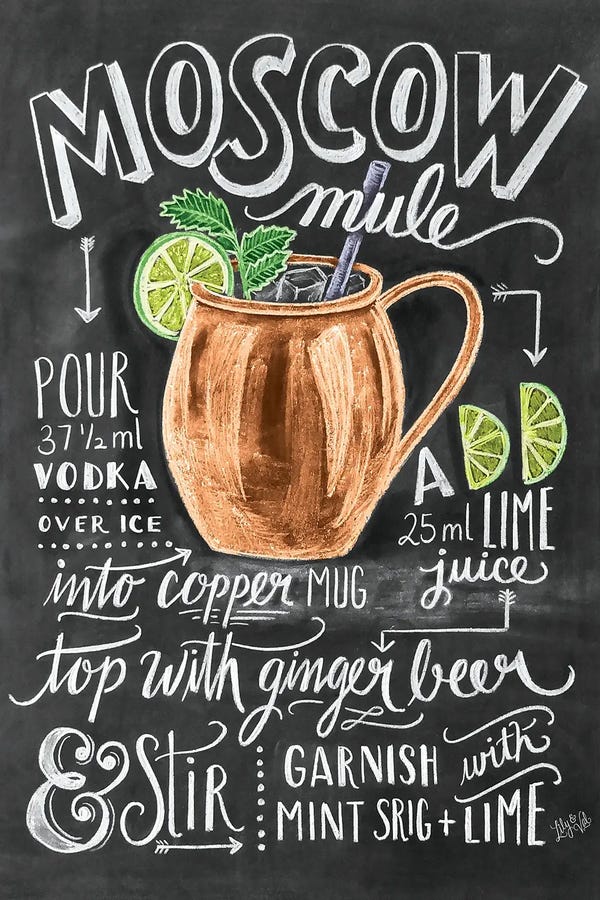 MOSCOW
mule
POUR
37 1/2 ml
VODKA
OVER ICE
into copper MUG
ADD
25 ml LIME
juice
top with ginger beer
& Stir
GARNISH with
MINT SRIG + LIME
Lily & Val